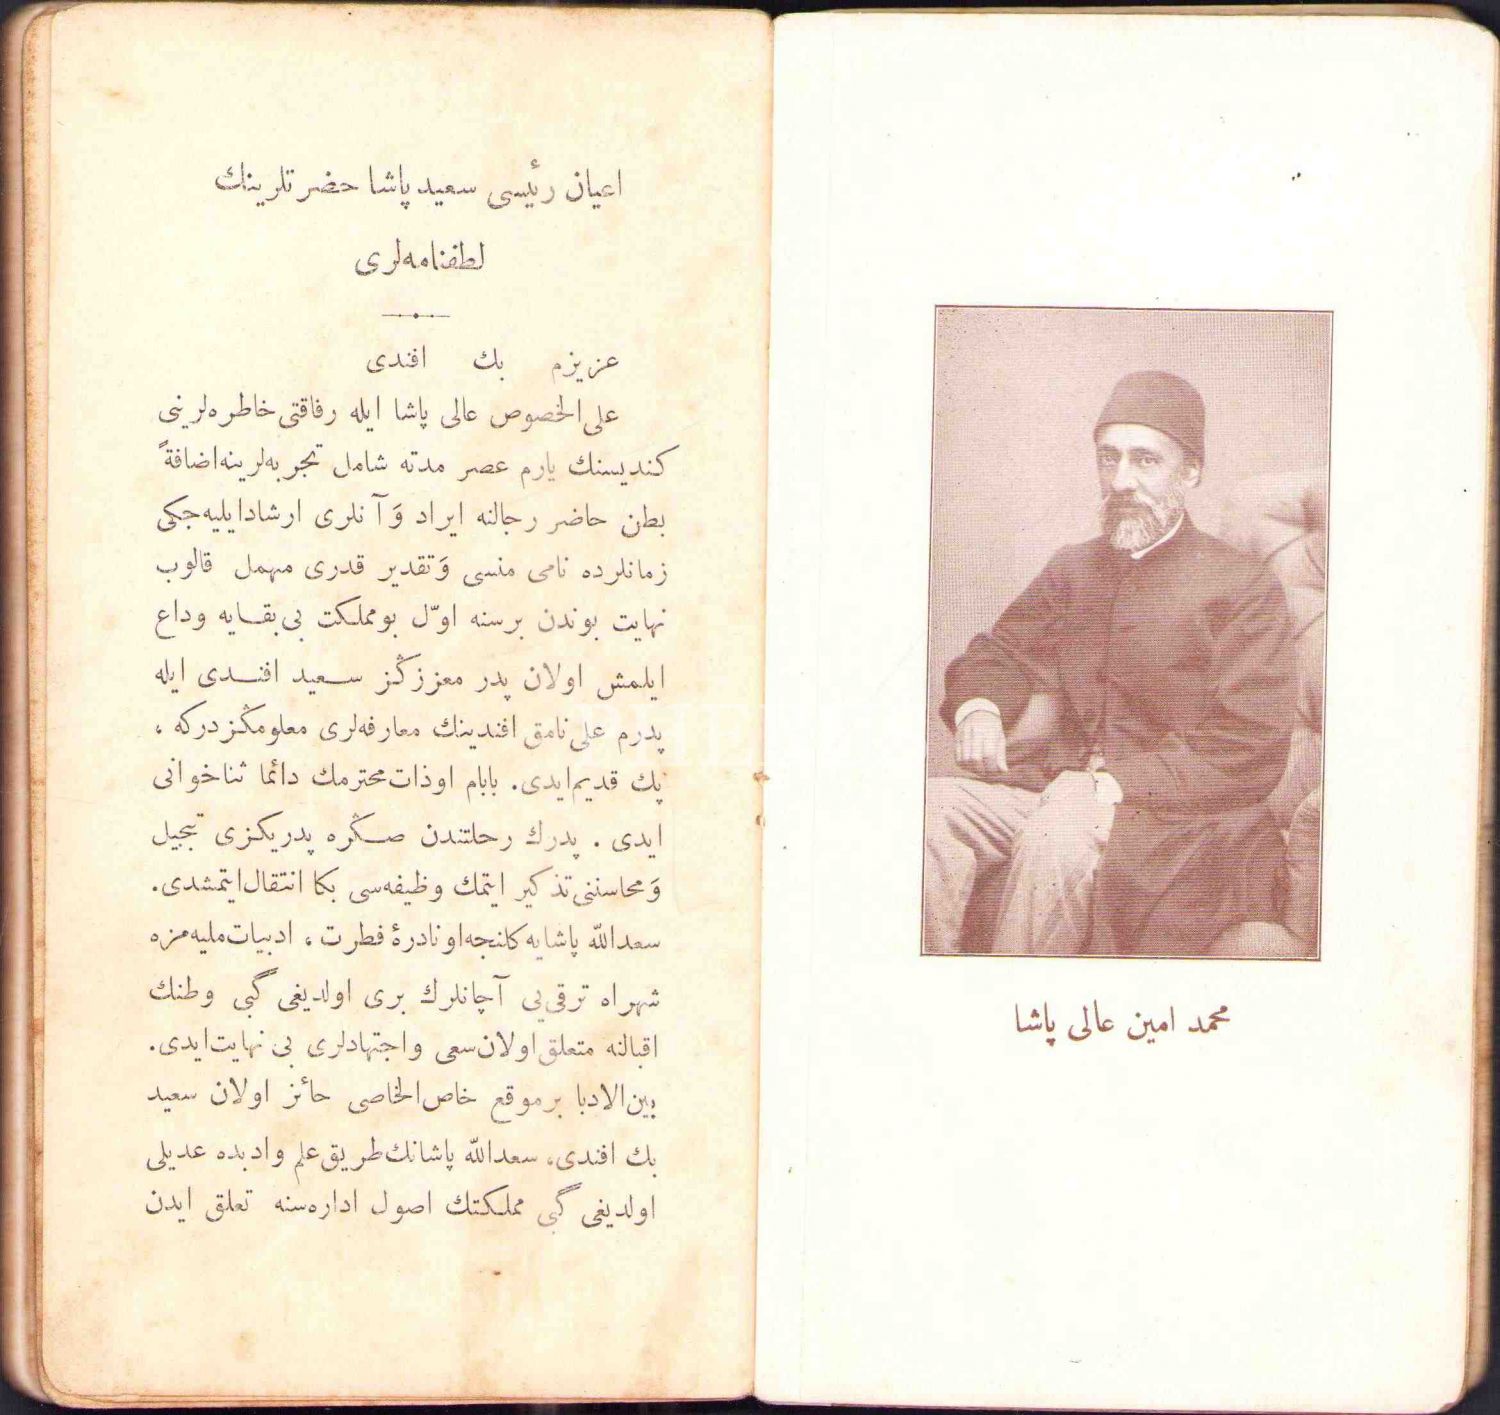 محمد امین عالی پاشا
اعیان رئیسی سعید پاشا حضرتلرینك
لطفنامه‌لری
عزیزم بك افندی
علی‌الخصوص عالی پاشا ایله رفاقتی خاطره‌لرینی
كندیسنك یارم عصر مدته شامل تجربه‌لرینه اضافةً
بطن حاضر رجالنه ایراد وَ آنلری ارشاد ایلیه‌جكی
زمانلرده نامی منسی وَ تقدیر قدری مهمل قالوب
نهایت بوندن برسنه اوّل بو مملكت بی‌بقایه وداع
ایلمش اولان پدر معززڭز سعید افندی ایله
پدرم علی نامق افندینك معارفه‌لری معلومڭز دركه ،
پك قدیم ایدی. بابام او ذات محترمك دائما ثناخوانی
ایدی . پدرك رحلتندن صڭره پدریكزی تبجیل
وَ محاسننی تذكیر ایتمك وظیفه‌سی بكا انتقال ایتمشدی.
سعدالله پاشایه كلنجه او نادرۀ فطرت ، ادبیات ملیه‌مزه
شهراه ترقی‌یی آچانلرك بری اولدیغی گبی وطنك
اقبالنه متعلق اولان سعی واجتهادلری بی نهایت ایدی.
بین‌الادبا برموقع خاص‌الخاصی حائز اولان سعید
بك افندی، سعدالله پاشانك طریق علم وادبده عدیلی
اولدیغی گبی مملكتك اصول اداره‌سنه تعلق ایدن